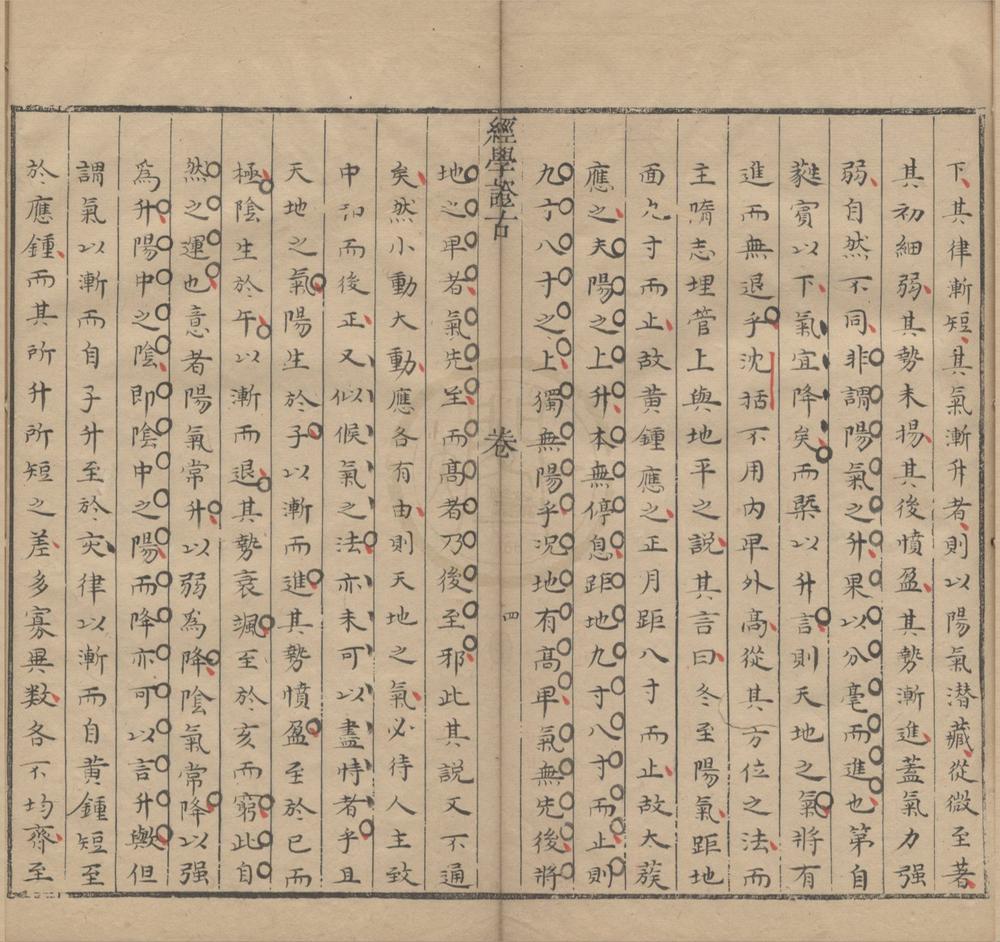 下其律漸短其氣漸升者則以陽氣潛藏從微至著
其初細弱其勢未揚其後憤盈其勢漸進蓋氣力強
弱自然不同非謂陽氣之升果以分毫而進也第自
蕤賓以下氣宜降矣而槩以升言則天地之氣將有
進而無退乎沈括不用內卑外高從其方位之法而
主隋志埋管上與地平之說其言曰冬至陽氣距地
面九寸而止故黃鍾應之正月距八寸而止故大蔟
應之夫陽之上升本無停息距地九寸八寸而止則
九寸八寸之上獨無陽乎況地有高卑氣無先後將
經學證古
卷
四
地之卑者氣先至而高者乃後至邪此其說又不通
矣然小動大動應各有由則天地之氣必待人主致
中和而後正又似候氣之法亦未可以盡恃者乎且
天地之氣陽生於子以漸而進其勢憤盈至於巳而
極陰生於午以漸而退其勢衰颯至於亥而窮此自
然之運也意者陽氣常升以弱為降陰氣常降以强
為升陽中之陰即陰中之陽而降亦可以言升歟但
謂氣以漸而自子升至於亥律以漸而自黃鍾短至
於應鍾而其所升所短之差多寡異数各不均齊至